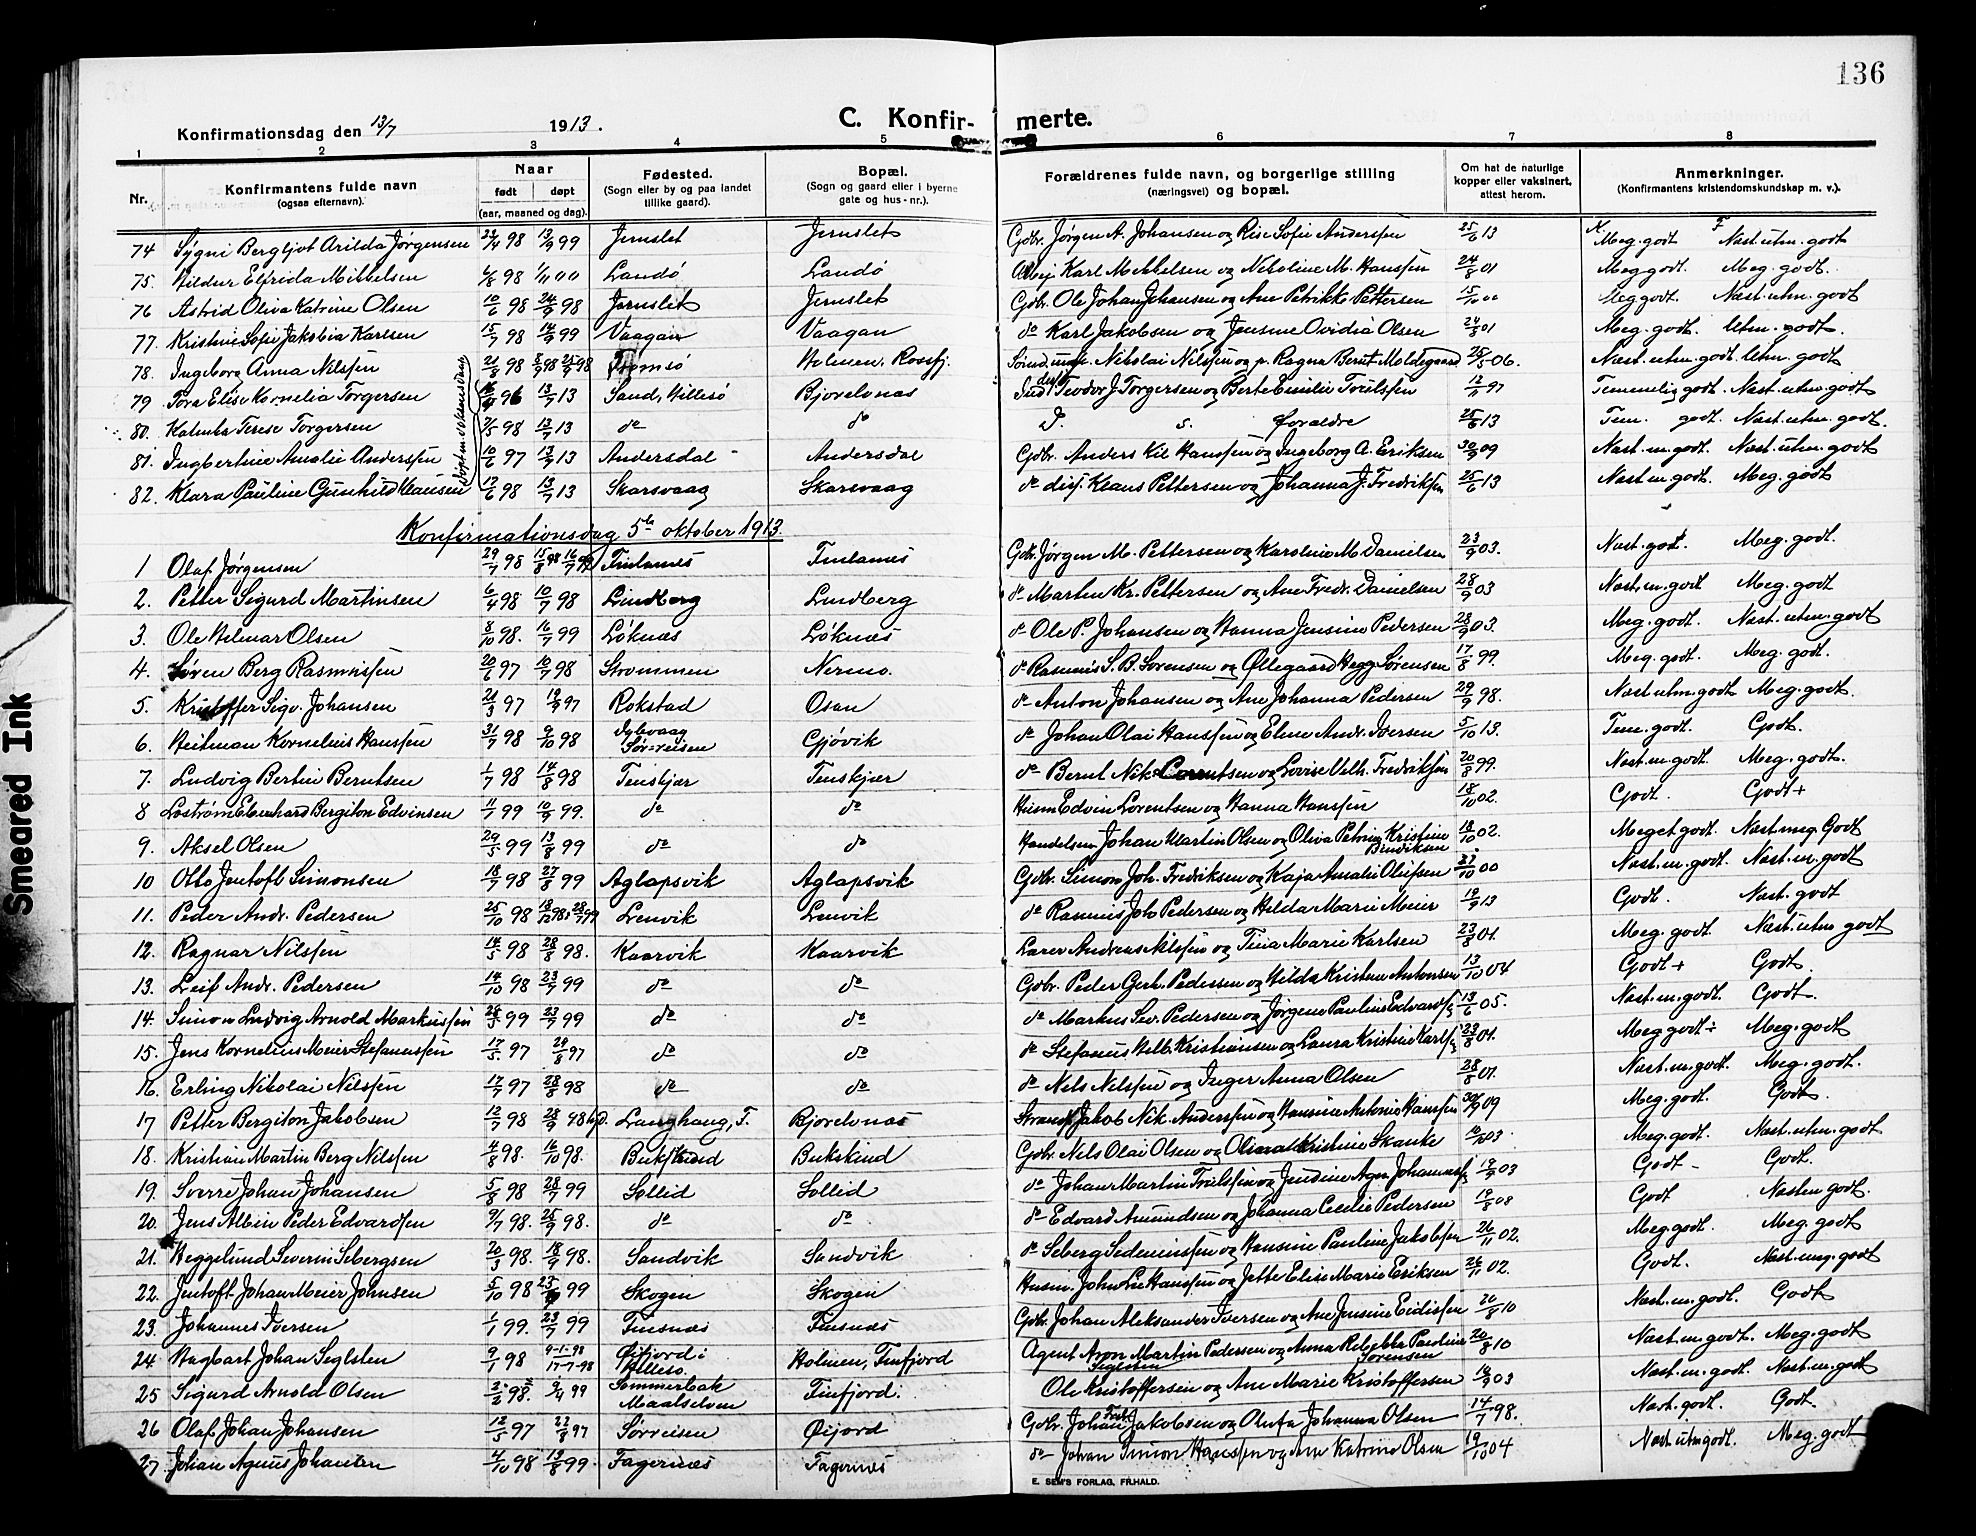 136
Konfirmationsdag den 13/7 1913.
C. Konfir- merte.
1 2 3 4 5 6 7 8
Nr. Konfirmantens fulde navn (ogsaa efternavn). Naar født døpt (aar, maaned og dag). Fødested. (Sogn eller by og paa landet tillike gaard). Bopæl. (Sogn og gaard eller i byerne gate og hus-nr.). Forældrenes fulde navn, og borgerlige stilling (næringsvei) og bopæl. Om hat de naturlige kopper eller vaksinert, attest herom. Anmerkninger. (Konfirmantens kristendomskundskap m. v.).
74 Sygni Bergljot Arilda Jørgensen 13/9 99 Jernslet Jernslet Gdbr. Jørgen A. Johansen og Rise Sofie Anderssen 25/6 13 Meg. godt Næst. utm. godt
75. Hildur Elfrida Mikkelsen Landø Landø Karl Mikkelsen og Nikoline M. Hanssen 24/8 01 Meg godt. Meg. godt.
76 Astrid Oliva Katrine Olsen 10/6 98 24/9 98 Jernslet Jernslet Gdbr. Ole Johan Johansen og Ane Petrikke Pettersen Meg godt. Næst. utm. godt
77. Kristine Sofie Jakobea Karlsen 15/7 98 14/9 99 Vaagan Vaagan do Karl Jakobsen og Jensine Ovidia Olsen 24/8 01 Meg. godt. Utm. godt.
78. Ingeborg Anna Nilssen 21/8 98 Tromsø Holmen, Rossfj. Nikolai Nilssen og p. Ragna Bernt. Moldegaard Næst. utm. godt Utm. godt
79 Tora Elise Kornelia Torgersen 96 13/7 13 Sand, Hillesø Bjorelvnæs Teodor J. Torgersen og Berte Emilie Trulssen 97 Temmelig godt. Næst. utm. godt
80. Katinka Terese Torgersen 98 13/7 13 do do D. s. foraldre 25/6 13 Tem. godt. Næst. utm. godt.
81. Ingbertine Amalie Anderssen 10/6 97 13/7 13 Andersdal Andersdal Gdbr. Anders Kil Hanssen og Ingeborg A. Eriksen 30/9 09 Næst. m. godt. Næst. utm. godt
82. Klara Pauline Gunhild Klausen 17/6 98 13/7 13 Skarsvaag Skarsvaag do disp. Klaus Pettersen og Johanna J. Fredrikssen 25/6 13 Næst m. godt. Meg. godt
Konfirmationsdag 5te oktober 1913.
1 Olaf Jørgensen 29/7 98 Finlanæs Finlanæs Gdbr. Jørgen M. Pettersen og Karoline M. Danielsen 23/9 03. Næst. godt. Meg. godt.
2. Petter Sigurd Martinsen 6/4 98 10/7 98 Lindberg Lindberg do Martin Kr. Pettersen og Ane Fredr. Danielsen 28/9 03 Næst. m. godt Meg. godt
3. Ole Hilmar Olsen 8/10 98. 16/7 99 Løknæs Løknæs do Ole P. Johansen og Hanna Jensine Pedersen 28/9 03. Meg. godt. Næst. utm. godt
4. Søren Berg Rasmussen 20/6 97 10/7 98 Strommen Nermo. do Rasmus S. B. Sørensen og Øllegaard Hegg Sørensen 17/8 99. Meg. godt. Meg. godt.
5. Kristoffer Sigv. Johansen 21/3 97 19/9 97 Rokstad Osan do Anton Johansen og Ane Johanna Pedersen 29/9 98. Næst utm. godt Meg. godt.
6. Heitman Kornelius Hanssen 31/7 98 9/10 98 Sør-reisen Gjøvik do Johan Olai Hanssen og Eline Andr. Iversen 5/10 13. Tem. godt. Godt.
7. Ludvig Bertin Berntsen 1/7 98 14/8 98 Finskjær Finskjær do Bernt Nik. Berntsen og Lovise Velh. Fredrikssen 20/8 99. Næst. m. godt. Meg. godt.
8 Løstrøm Ebenhard Bergiton Edvinsen 11/7 99 10/9 99. do do Husm Edvin Lorentsen og Hanna Hanssen 18/10 02. Godt. Godt+
9. Aksel Olsen 29/5 99 13/8 99 do do Handelsm. Johan Martin Olsen og Oliva Petrine Kristine Bendiksen 18/10 02. Meget godt. Næst. meg. Godt
10 Otto Jentoft Simonsen 18/7 98 27/8 99 Aglapsvik Aglapsvik Gdbr. Simon Joh. Fredriksen og Kaja Amalie Olufsen 27/10 00 Næst. m. godt. Næst. m. godt
11. Peder Andr. Pedersen 25/10 98 Lenvik Lenvik do Rasmus Joh. Pedersen og Hilda Marie Meier 19/9 13 Godt. Næst. godt
12. Ragnar Nilssen 14/5 98 28/8 98. Kaarvik Kaarvik Lærer Andreas Nilssen og Tina Marie Karlsen 23/8 01. Meg. godt Næst. utm godt
13. Leif Andr. Pedersen 14/10 98 23/7 99 do do Gdbr. Peder Gerh. Pederssen og Hilda Kristine Antonsen 13/10 04 Godt+ Godt.
14. Simon Ludvig Arnold Markussen 99 23/7 99 do do do Markus Sev. Pedersen og Jørgine Pauline Edvardss. 13/6 05. Næst. m. godt. Godt.
15. Jens Kornelius Meier Stefanussen 17/5 97 29/8 97 do do do Stefanus Kristiansen og Laura Kristine Karlss. 23/8 01. Meg godt÷ Meg. godt
16. Erling Nikolai Nilssen 17/7 97 28/8 98 do do do Nils Nilssen og Inger Anna Olsen 28/8 01. Næst. m. godt. Meg. godt.
17 Petter Bergiton Jakobsen 12/7 98 28/9 98 Langhaug, T. Bjorelvnæs Jakob Nik. Anderssen og Hansine Antonie Hanssen 09 Meg. godt. Godt.
18. Kristian Martin Berg Nilssen 4/8 98. 16/10 98. Bukskind Bukskind Gdbr. Nils Olai Olsen og Kristine Skanke 03. Meg. godt. Næst. utm. godt
19. Sverre Johan Johansen 5/8 98 28/7 99 Sollid Sollid do Johan Martin Trulssen og Jendine Agn. Johanness. 03 Godt- Godt.
20. Jens Albin Peder Edvardsen 9/7 98. 25/9 98. do do do Edvard Amundsen og Johanna Cecilie Pedersen 19/8 08 Godt Næsten godt.
21. Heggelund Severin Sebergsen 20/3 98. 18/9 98. Sandvik Sandvik do Seberg Sedeniussen og Hansine Pauline Jakobsen 26/11 02. Meg godt. Meg. godt
22. Jentoft Johan Meier Johnsen 5/10 98 99 Skogen Skogen Husm. John Hanssen og Jette Elise Marie Eriksen 26/11 02. Godt. Næst. meg. godt
23. Johannes Iversen 1/1 99. 23/7 99 Finsnæs Finsnæs Gdbr. Johan Aleksander Iversen og Ane Jensine Eidissen 20/8 10 Næst. m. godt. Godt
24 Hagbart Johan Seglsten 9/1 98 9-1-98 17-7-98 Øifjord i Hillesø. Holmen, Finfjord Agent Aron Martin Pedersen Seglsten og Anna Rebekka Pauline Sørensen 20/8 10 Næst. m. godt. Meg. godt
25 Sigurd Arnold Olsen 98. 99 Sommerbak Maalselven Finfjord. Ole Kristoffersen og Ane Marie Kristoffersen 03 Næst. m. godt. Næst. m. godt
26 Olaf Johan Johansen 12/5 97 22/8 97 Sørreisen Øijord Gdbr. Johan Jakobsen og Olufa Johanna Olsen 14/7 98. Næst. godt. Godt.
27. Johan Agnus Johansen 4/10 98 13/8 99. Fagernæs Fagernæs do Johan Simon Hanssen og Ane Katrine Olsen 19/10 04 Næst utm godt. Meg. godt
E. SEM'S FORLAG, FR.HALD.
Smeared Ink